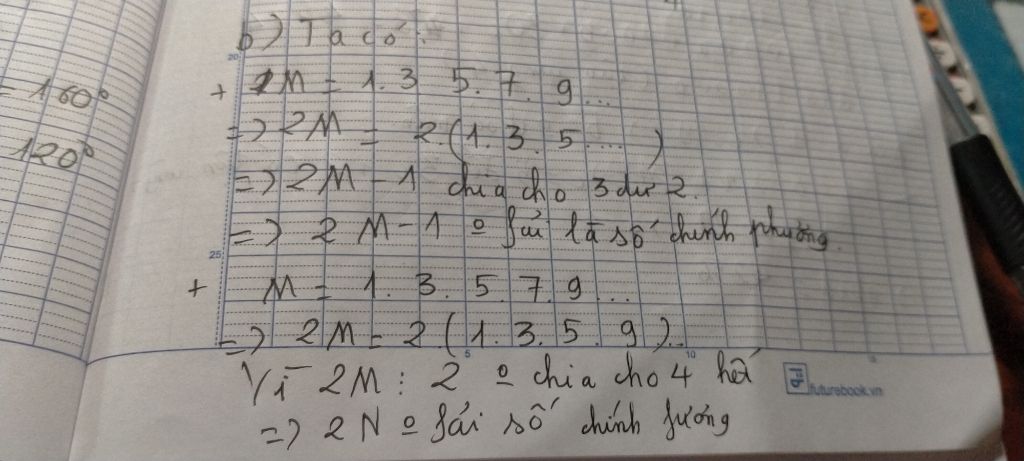 b) Ta có:
= 160°
+ 2M = 1.3 5.7.9...
20
=> 2M = 2.(1.3.5....)
120°
=> 2M - 1 chia cho 3 dư 2.
=> 2M-1 º fải là số chính phương.
25
+ M = 1.3.5.7.9...
=> 2M = 2(1.3.5.9)..
5
10
Vì 2M : 2 º chia cho 4 hết
futurebook.vn
=> 2N º fải số chính fương